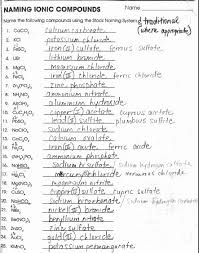 NAMING IONIC COMPOUNDS Name
Name the following compounds using the Stock Naming System. & traditional (where appropriate)
1. CaCO₃ calcium carbonate
2. KCl potassium chloride
3. FeSO₄ iron(II) sulfate ferrous sulfate
4. LiBr lithium bromide
5. MgCl₂ magnesium chloride
6. FeCl₃ iron(III) chloride ferric chloride
7. zinc phosphate
8. ammonium nitrate
9. Al(OH)₃ aluminum hydroxide
10. copper(I) acetate cuprous acetate
11. lead(II) sulfite plumbous sulfite
12. sodium chlorate
13. calcium oxalate
14. Fe₂O₃ iron(III) oxide ferric oxide
15. ammonium phosphate
16. NaHSO₄ sodium hydrogen sulfate
17. Hg₂Cl₂ mercury(I) chloride mercurous chloride
18. Mg(NO₂)₂ magnesium nitrite
19. CuSO₄ copper(II) sulfate cupric sulfate
20. NaHCO₃ sodium bicarbonate / sodium hydrogen carbonate
21. NiBr₃ nickel(III) bromide
22. beryllium nitrate
23. ZnSO₄ zinc sulfate
24. AuCl₃ gold(III) chloride
25. KMnO₄ potassium permanganate